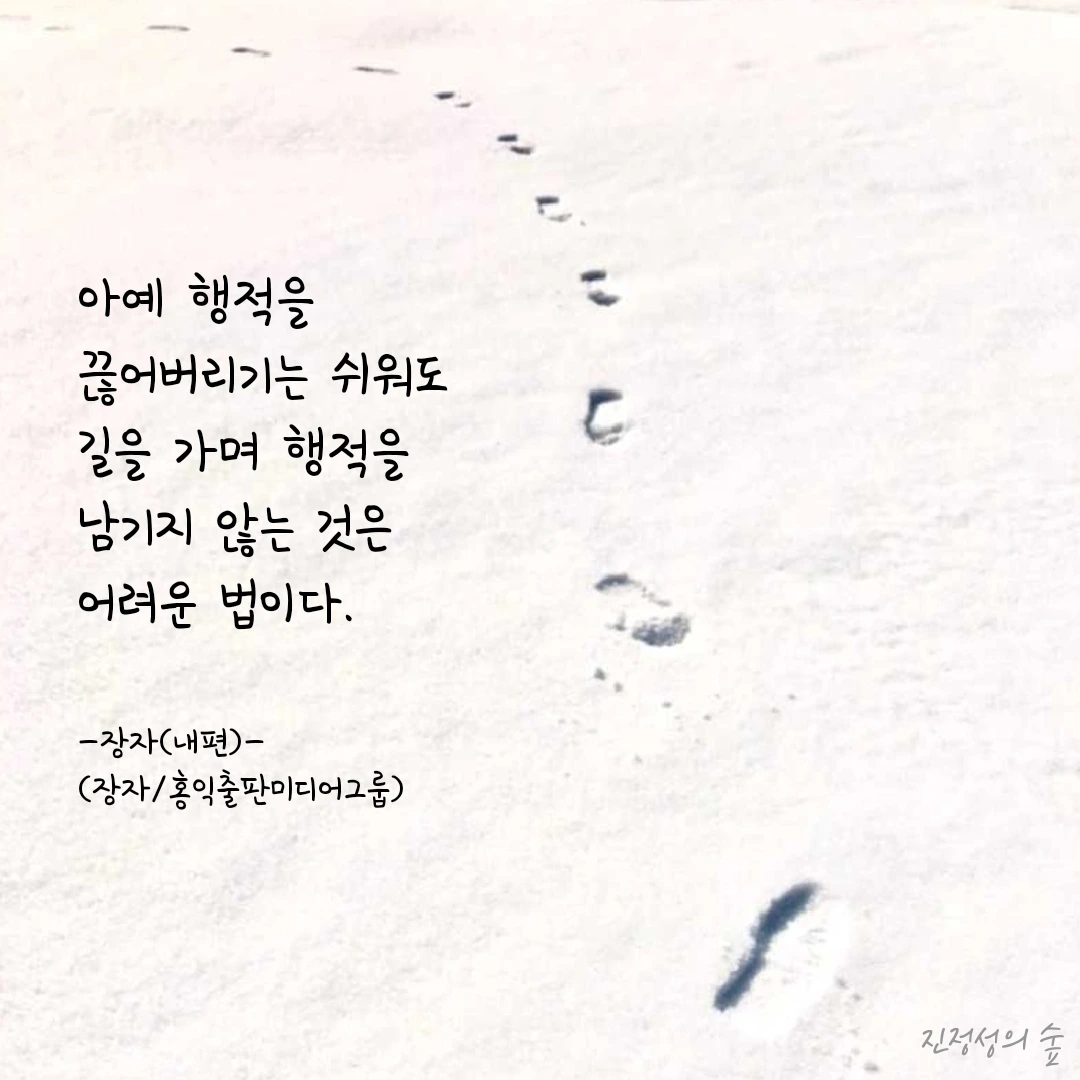 아예 행적을
끊어버리기는 쉬워도
길을 가며 행적을
남기지 않는 것은
어려운 법이다.
-장자(내편)-
(장자/홍익출판미디어그룹)
진정성의 숲